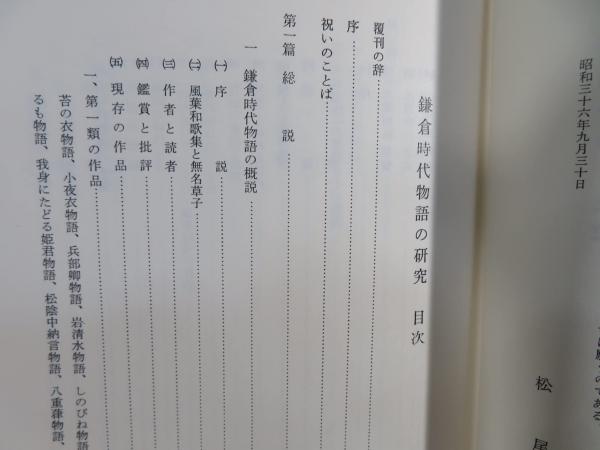 昭和三十六年九月三十日
松尾
鎌倉時代物語の研究 目次
覆刊の辞
序
祝いのことば
第一篇 総説
一 鎌倉時代物語の概説
㈠ 序説
㈡ 風葉和歌集と無名草子
㈢ 作者と読者
㈣ 鑑賞と批評
㈤ 現存の作品
一、第一類の作品
苔の衣物語、小夜衣物語、兵部卿物語、岩清水物語、しのびね物語
るも物語、我身にたどる姫君物語、松陰中納言物語、八重葎物語、